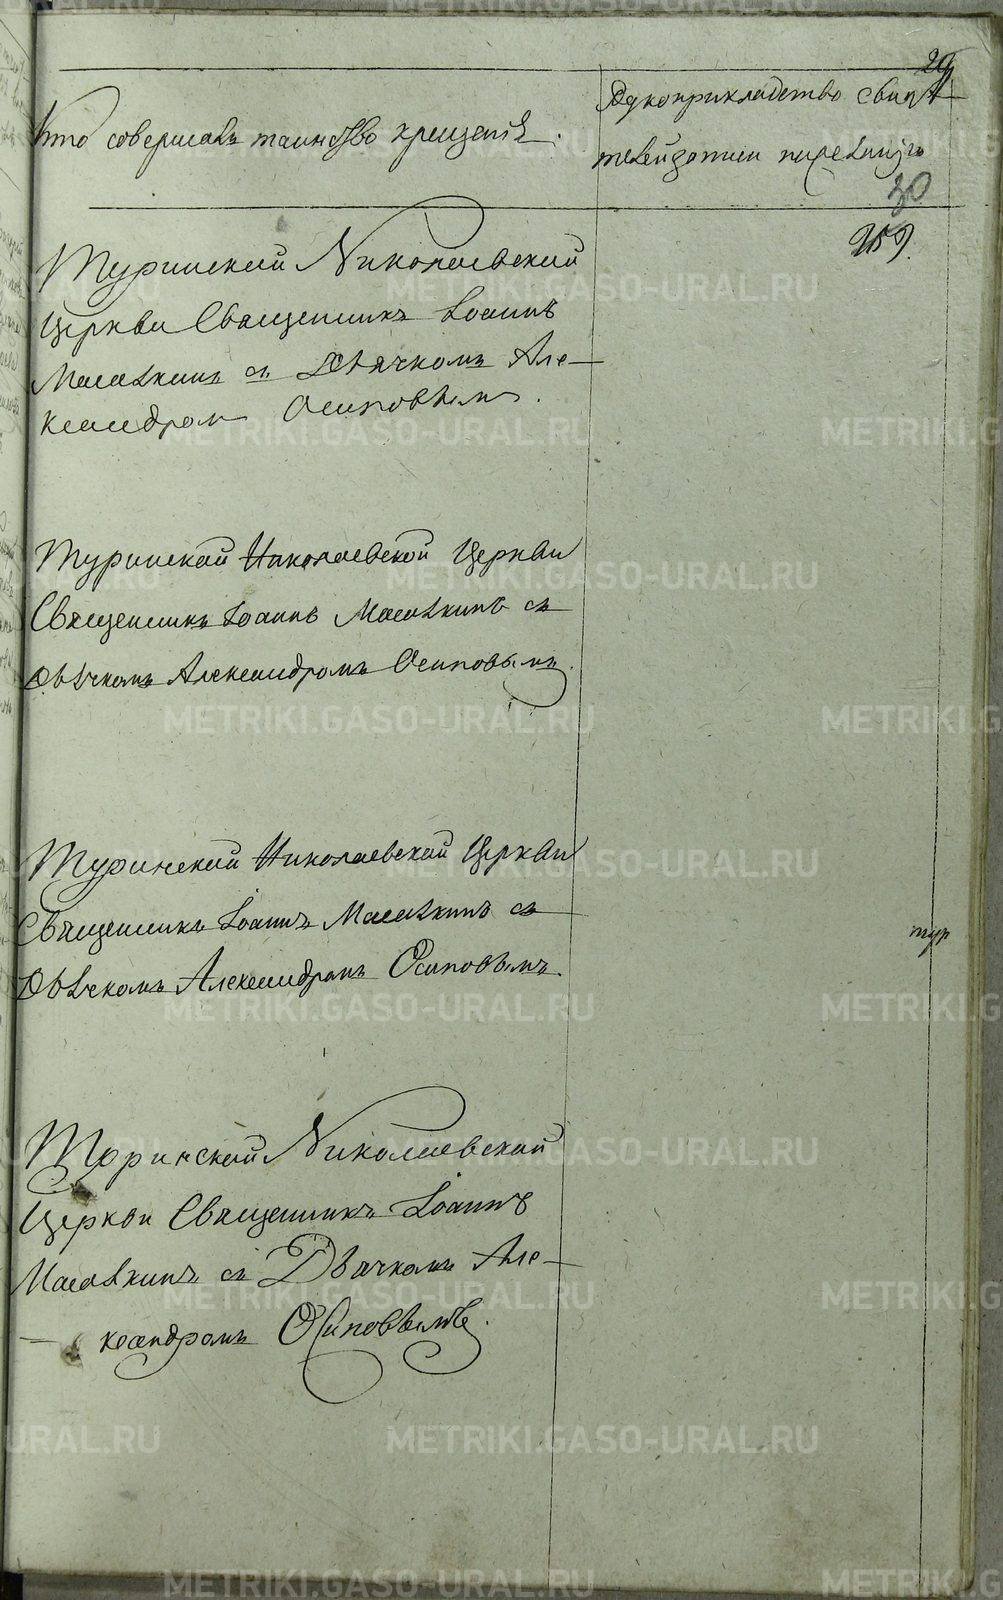 29
Кто совершалъ таинство крещенія.
Рукоприкладство свидѣ-
телей записи по желанію
30
259.
Туринской Николаевской
Церкви Священникъ Іоаннъ
съ Дьячкомъ Але-
ксандром Осиповымъ.
Туринской Николаевской Церкви
Священникъ Іоаннъ съ
Дьячкомъ Александромъ Осиповымъ.
Туринской Николаевской Церкви
Священникъ Іоаннъ съ
Дьячкомъ Александромъ Осиповымъ.
тур
Туринской Николаевской
Церкви Священникъ Іоаннъ
съ Дьячкомъ Але-
ксандромъ Осиповымъ.
METRIKI.GASO-URAL.RU